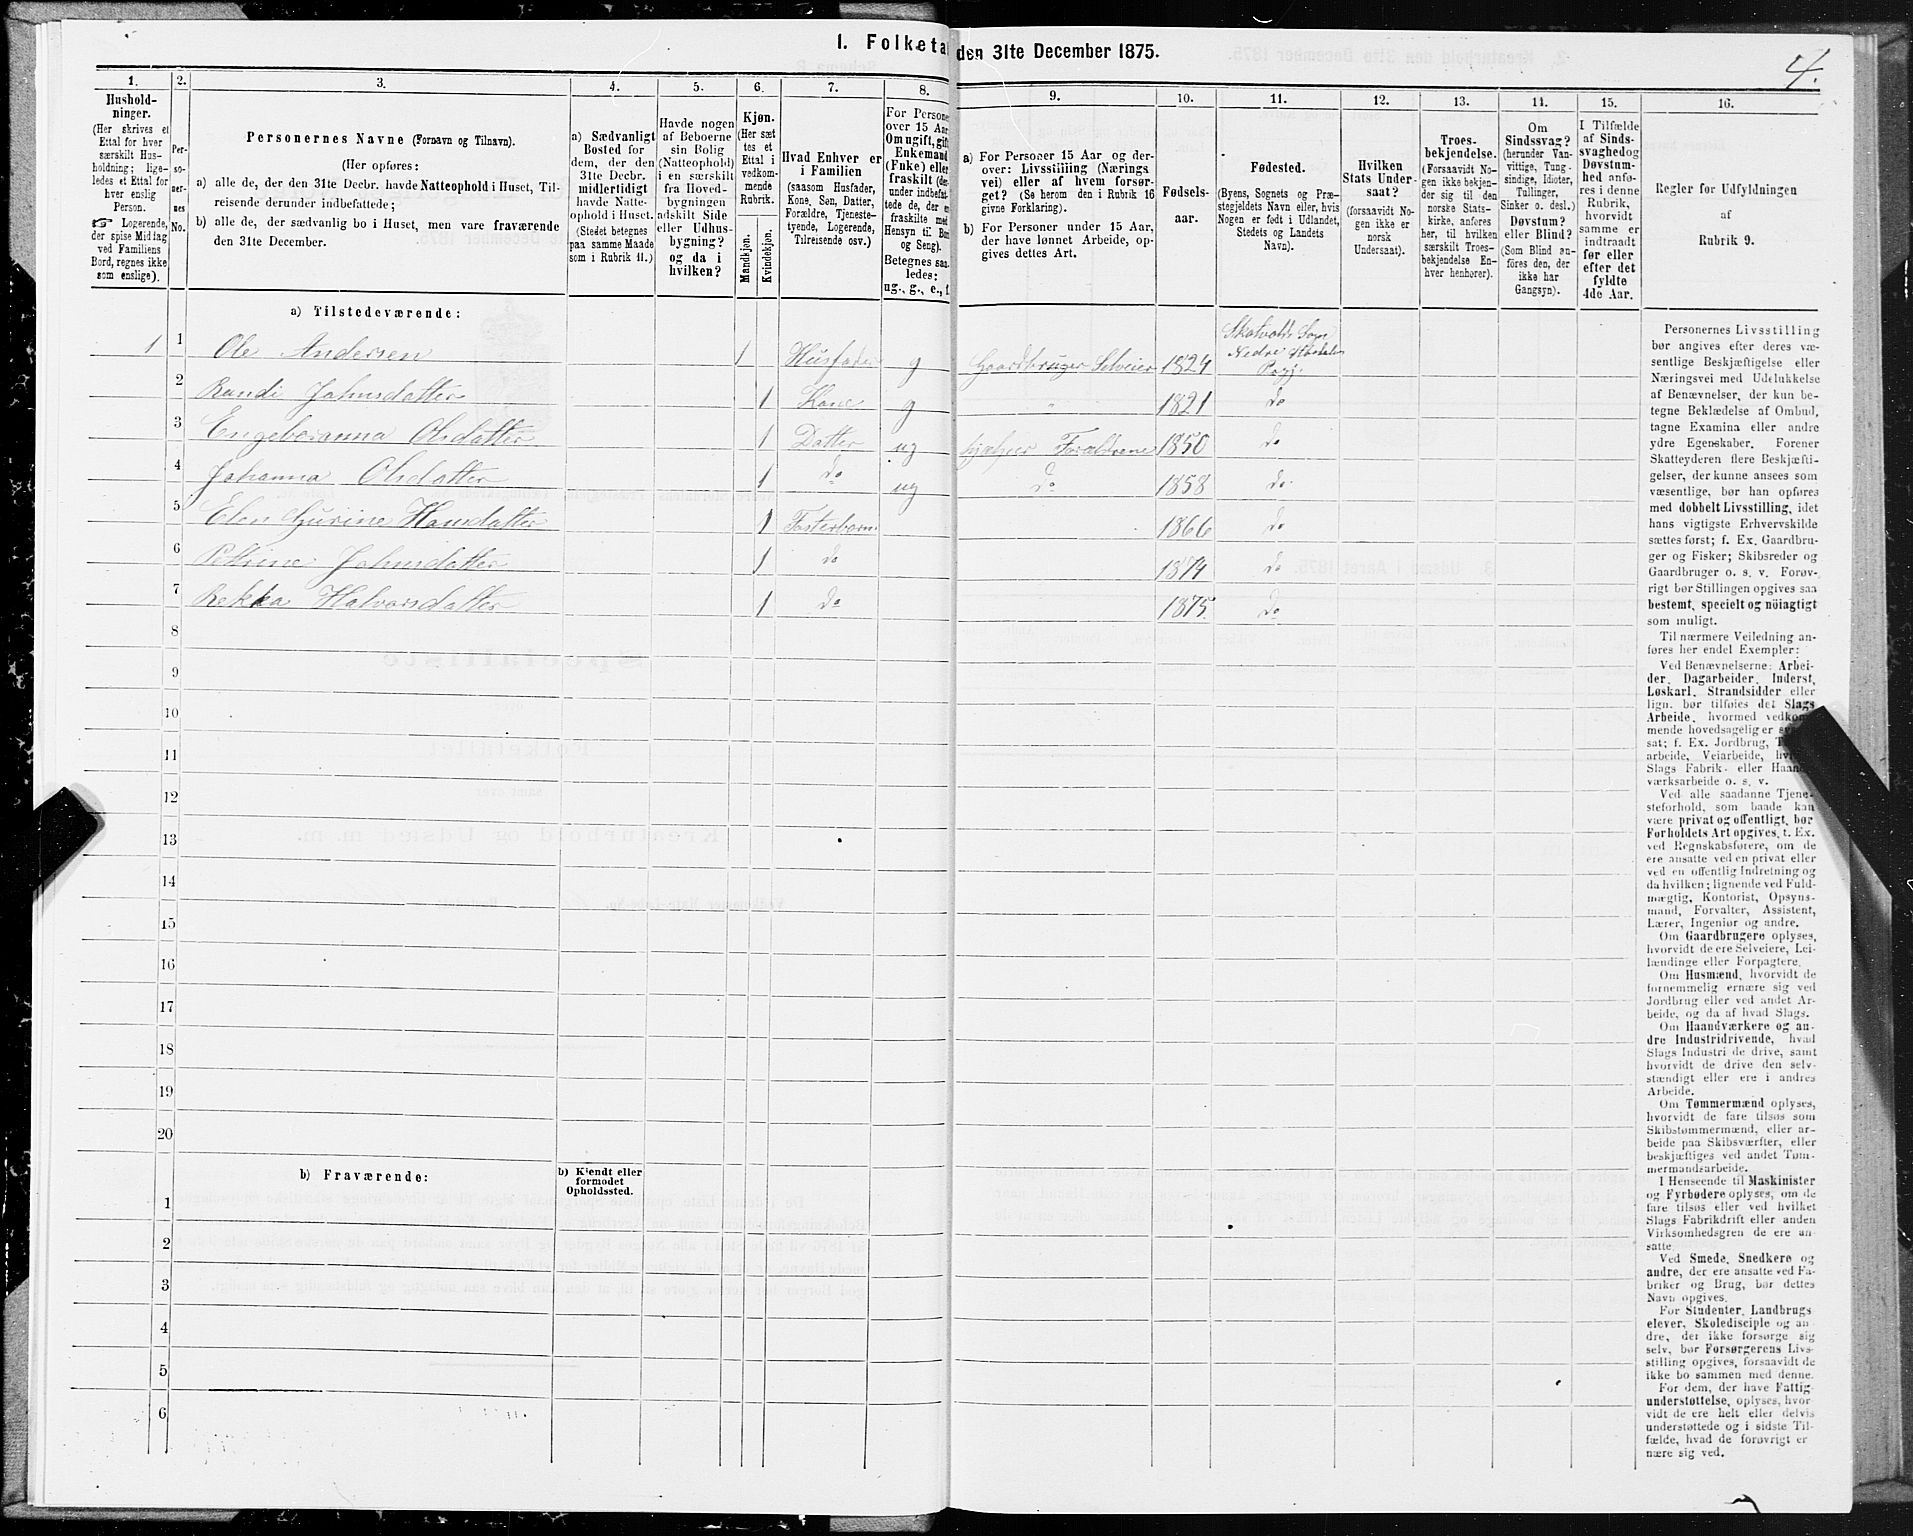 1. Folketal den 31te December 1875.
4.
1. 2. 3. 4. 5. 6. 7. 8. 9. 10. 11. 12. 13. 14. 15. 16.
Hushold-
ninger.
(Her skrives et
Ettal for hver
særskilt Hus-
holdning; lige-
ledes et Ettal for
hver enslig
Person.
☞ Logerende,
der spise Middag
ved Familiens
Bord, regnes ikke
som enslige).
Per-
so-
ner-
nes
No.
Personernes Navne (Fornavn og Tilnavn).
(Her opføres:
a) alle de, der den 31te Decbr. havde Natteophold i Huset, Til-
reisende derunder indbefattede;
b) alle de, der sædvanlig bo i Huset, men vare fraværende
den 31te December.
a) Sædvanligt
Bosted for
dem, der den
31te Decbr.
midlertidigt
havde Natte-
ophold i Huset.
(Stedet betegnes
paa samme Maade
som i Rubrik 11.)
Havde nogen
af Beboerne
sin Bolig
(Natteophold)
i en særskilt
fra Hoved-
bygningen
adskilt Side
eller Udhus-
bygning?
og da i
hvilken?
Kjøn.
(Her sæt-
tes et
Ettal i
vedkom-
mende
Rubrik.
Mandkjøn.
Kvindekjøn.
Hvad Enhver er
i Familien
(saasom Husfader,
Kone, Søn, Datter,
Forældre, Tjeneste-
tyende, Logerende,
Tilreisende osv.)
For Persone
over 15 Aar
Om ugift, gift
Enkemand
(Enke) eller
fraskilt (der-
under indbefat-
tede de, der er
fraskilte med
Hensyn til Bo
og Seng).
Betegnes saa-
ledes:
ug., g., e., f.
a) For Personer 15 Aar og der-
over: Livsstilling (Nærings
vei) eller af hvem forsør-
get? (Se herom den i Rubrik 16
givne Forklaring).
b) For Personer under 15 Aar,
der have lønnet Arbeide, op-
gives dettes Art.
Fødsels-
aar.
Fødested.
(Byens, Sognets og Præ-
stegjeldets Navn eller, hvis
Nogen er født i Udlandet,
Stedets og Landets
Navn).
Hvilken
Stats Under-
saat?
(forsaavidt No-
gen ikke er
norsk
Undersaat).
Troes-
bekjendelse.
(Forsaavidt No-
gen ikke bekjen-
der sig til den
norske Stats-
kirke, anføres
her, til hvilken
særskilt Troes-
bekjendelse En-
hver henhører).
Om
Sindssvag?
(herunder Van-
vittige, Tung-
sindige, Idioter,
Tullinger,
Sinker o. desl.)
Døvstum?
eller Blind?
(Som Blind an-
føres den, der
ikke har
Gangsyn).
I Tilfælde
af Sinds-
svaghed og
Døvstum-
hed anfø-
res i denne
Rubrik,
hvorvidt
samme er
indtraadt
før eller
efter det
fyldte
4de Aar.
Regler for Udfyldningen
af
Rubrik 9.
a) Tilstedeværende:
1 1 Ole Andersen 1 Husfader g Gaardbruger Selveier 1824 Skatvolds Sogn Nedre Stjørdalen Prgj.
2 Randi Johnsdatter 1 Kone g " 1821 do
3 Engeberanna Olsdatter 1 Datter ug hjælper Forældrene 1850 do
4 Johanna Olsdatter 1 do ug do 1858 do
5 Elen Gurine Hansdatter 1 Fosterbarn 1866 do
6 Petrine Johnsdatter 1 do 1874 do
7 Rekka Halvorsdatter 1 do 1875 do
8
9
10
11
12
13
14
15
16
17
18
19
20
b) Fraværende:
b) Kjendt eller
formodet
Opholdssted.
1
2
3
4
5
6
Personernes Livsstilling
bør angives efter deres væ-
sentlige Beskjæftigelse eller
Næringsvei med Udelukkelse
af Benævnelser, der kun be-
tegne Beklædelse af Ombud,
tagne Examina eller andre
ydre Egenskaber. Forener
Skatteyderen flere Beskjæfti-
gelser, der kunne ansees som
væsentlige, bør han opføres
med dobbelt Livsstilling, idet
hans vigtigste Erhvervskilde
sættes først; f. Ex. Gaardbru-
ger og Fisker; Skibsreder og
Gaardbruger o. s. v. Forøv-
rigt bør Stillingen opgives saa
bestemt, specielt og nöiagtigt
som muligt.
Til nærmere Veiledning an-
føres her endel Exempler:
Ved Benævnelserne: Arbei-
der, Dagarbeider, Inderst,
Løskarl, Strandsidder eller
lign. bør tilføies det Slags
Arbeide, hvormed vedkom-
mende hovedsagelig er
sat; f. Ex. Jordbrug,
arbeide, Veiarbeide,
Slags Fabrik- eller Haand-
værksarbeide o. s. v.
Ved alle saadanne Tjene-
steforhold, som baade kan
være privat og offentligt, bør
Forholdets Art opgives, t. Ex.
ved Regnskabsførere, om de
ere ansatte ved en privat eller
ved en offentlig Indretning og
da hvilken; lignende ved Fuld-
mægtig, Kontorist, Opsyns-
mand, Forvalter, Assistent,
Lærer, Ingeniør og andre.
Om Gaardbrugere oplyses,
hvorvidt de ere Selveiere, Lei-
lændinge eller Forpagtere.
Om Husmænd, hvorvidt de
fornemmelig ernære sig ved
Jordbrug eller ved andet Ar-
beide, og da af hvad Slags.
Om Haandværkere og an-
dre Industridrivende, hvad
Slags Industri de drive, samt
hvorvidt de drive den selv-
stændigt eller ere i andres
Arbeide.
Om Tømmermænd oplyses,
hvorvidt de fare tilsøs som
Skibstømmermænd, eller ar-
beide paa Skibsværfter, eller
beskjæftiges ved andet Tøm-
mermandsarbeide.
I Henseende til Maskinister
og Fyrbødere oplyses, om de
fare tilsøs eller ved hvilket
Slags Fabrikdrift eller anden
Virksomhedsgren de ere an-
satte.
Ved Smede, Snedkere og
andre, der ere ansatte ved Fa-
briker og Brug, bør dettes
Navn opgives.
For Studenter, Landbrugs
elever, Skoledisciple og an
dre, der ikke forsørge sig
selv, bør Forsørgerens Livs-
stilling opgives, forsaavidt de
ikke bo sammen med denne.
For dem, der have Fattig-
understøttelse, oplyses, hvor-
vidt de ere helt eller delvis
understøttede og i sidste Til-
fælde, hvad de forøvrigt er
nære sig ved.